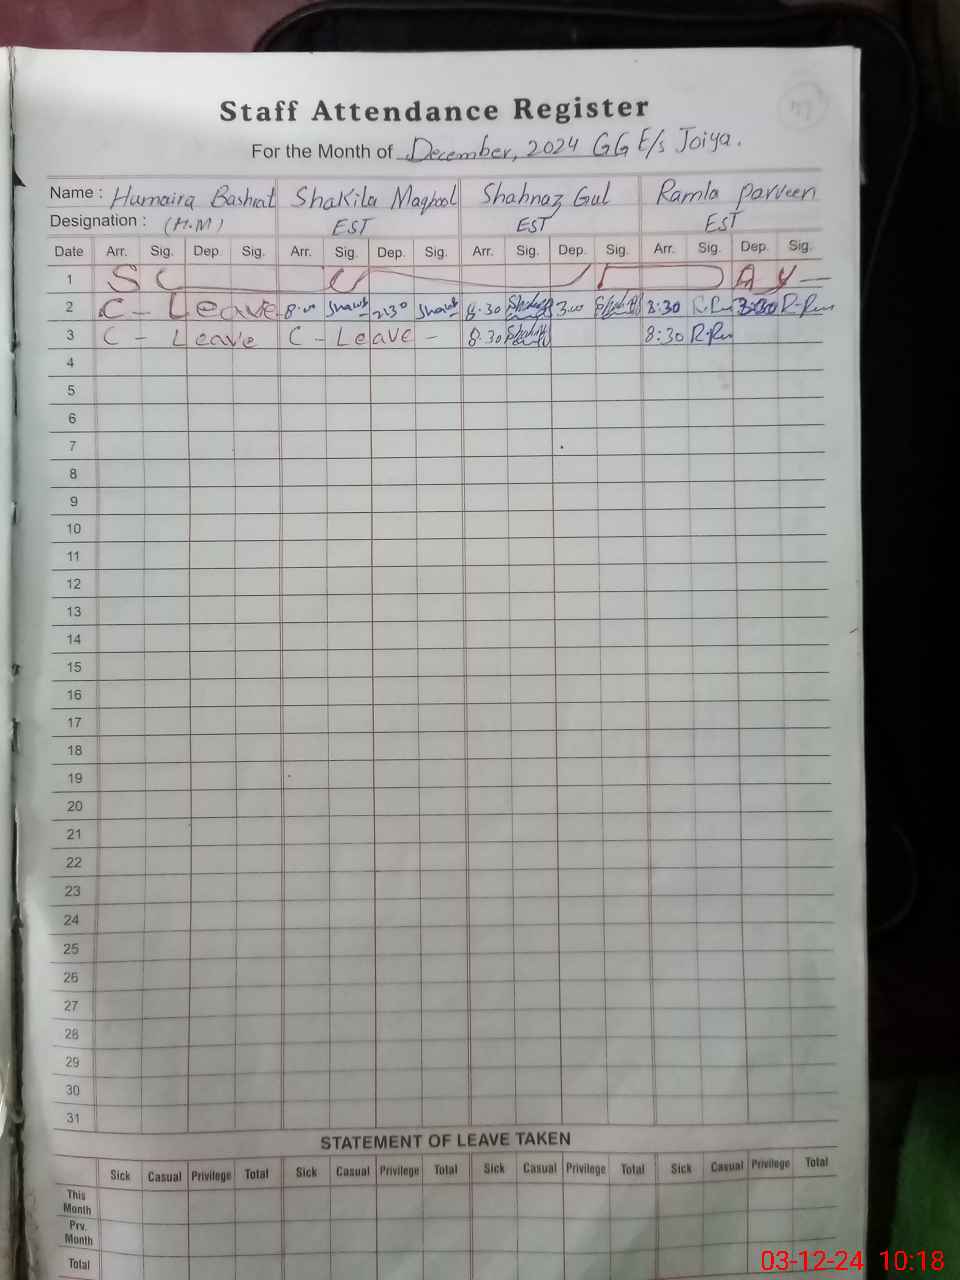 Staff Attendance Register
For the Month of December, 2024 GG E/s Joiya.
Name : Humaira Basharat Shakila Maqbool Shahnaz Gul Ramla Parveen
Designation : (H.M) EST EST EST
Date Arr. Sig. Dep. Sig. Arr. Sig. Dep. Sig. Arr. Sig. Dep. Sig. Arr. Sig. Dep. Sig.
1 S U N D A Y
2 C - Leave 8.00 2:30 8.30 3.00 8:30 3:30
3 C - Leave C - Leave - 8.30 8:30
4
5
6
7
8
9
10
11
12
13
14
15
16
17
18
19
20
21
22
23
24
25
26
27
28
29
30
31
STATEMENT OF LEAVE TAKEN
Sick Casual Privilege Total Sick Casual Privilege Total Sick Casual Privilege Total Sick Casual Privilege Total
This
Month
Prv.
Month
Total
03-12-24 10:18